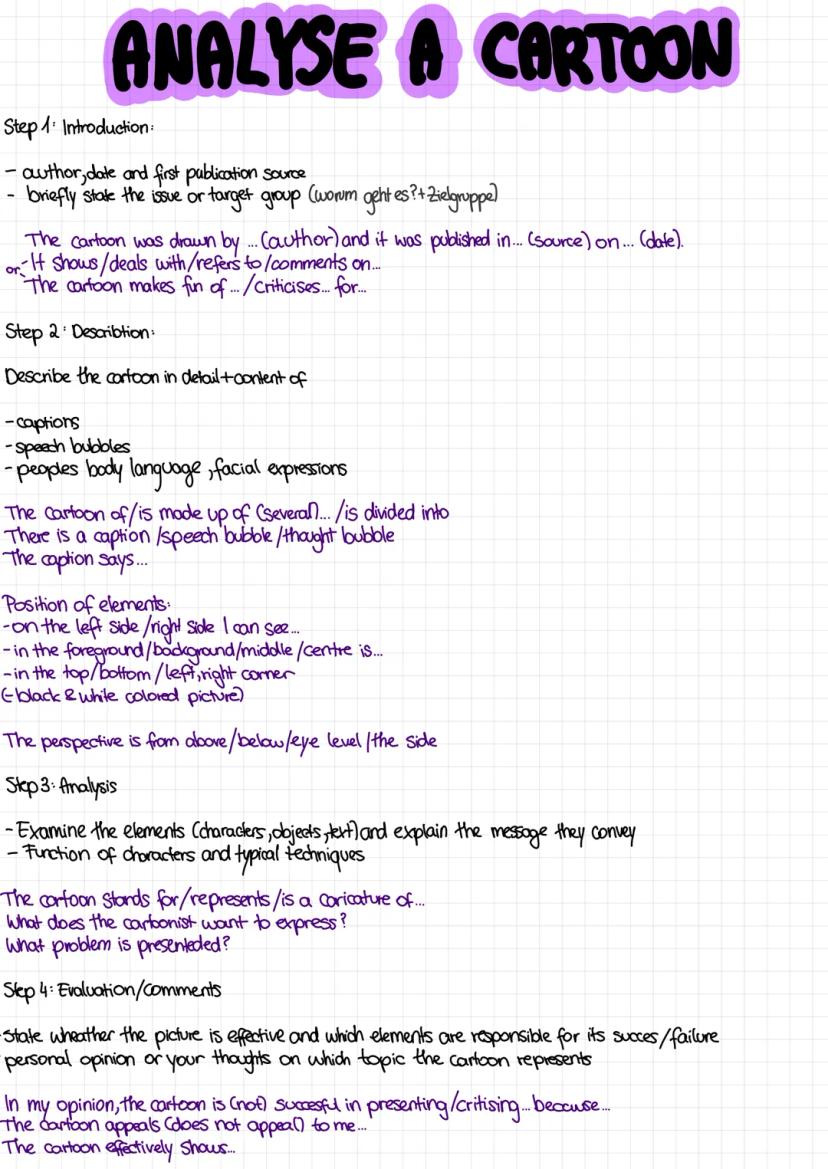 ANALYSE A CARTOON
Step 1: Introduction:
- author, date and first publication source
- briefly state the issue or target group (worum geht es?+Zielgruppe)
The cartoon was drawn by ... (author) and it was published in... (source) on... (date).
or:- It shows/deals with/refers to/comments on...
The cartoon makes fin of ... /criticises... for...
Step 2: Describtion:
Describe the cartoon in detail+content of
- captions
- speech bubbles
- peoples body language, facial expressions
The cartoon of/is made up of (several)... /is divided into
There is a caption /speech bubble /thought bubble
The caption says...
Position of elements:
- on the left side /right side I can see...
- in the foreground/background/middle/centre is...
- in the top/bottom /left,right corner
(-black & white colored picture)
The perspective is from above/below/eye level/the side
Step 3: Analysis
- Examine the elements (characters, objects, text) and explain the message they convey
- Function of characters and typical techniques
The cartoon stands for/represents/is a caricature of...
What does the cartoonist want to express?
What problem is presenteded?
Step 4: Evaluation/comments
State wheather the picture is effective and which elements are responsible for its succes/failure
personal opinion or your thoughts on which topic the cartoon represents
In my opinion, the cartoon is (not) succesful in presenting/critising... because...
The cartoon appeals (does not appeal) to me...
The cartoon effectively shows...